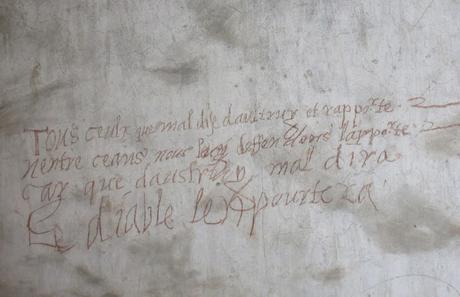 Tous ceulx que mal dise daustruy et rapporte
nentre ceans nous luy deffendons la porte
Car que daustruy mal dira
Le diable le pourtera